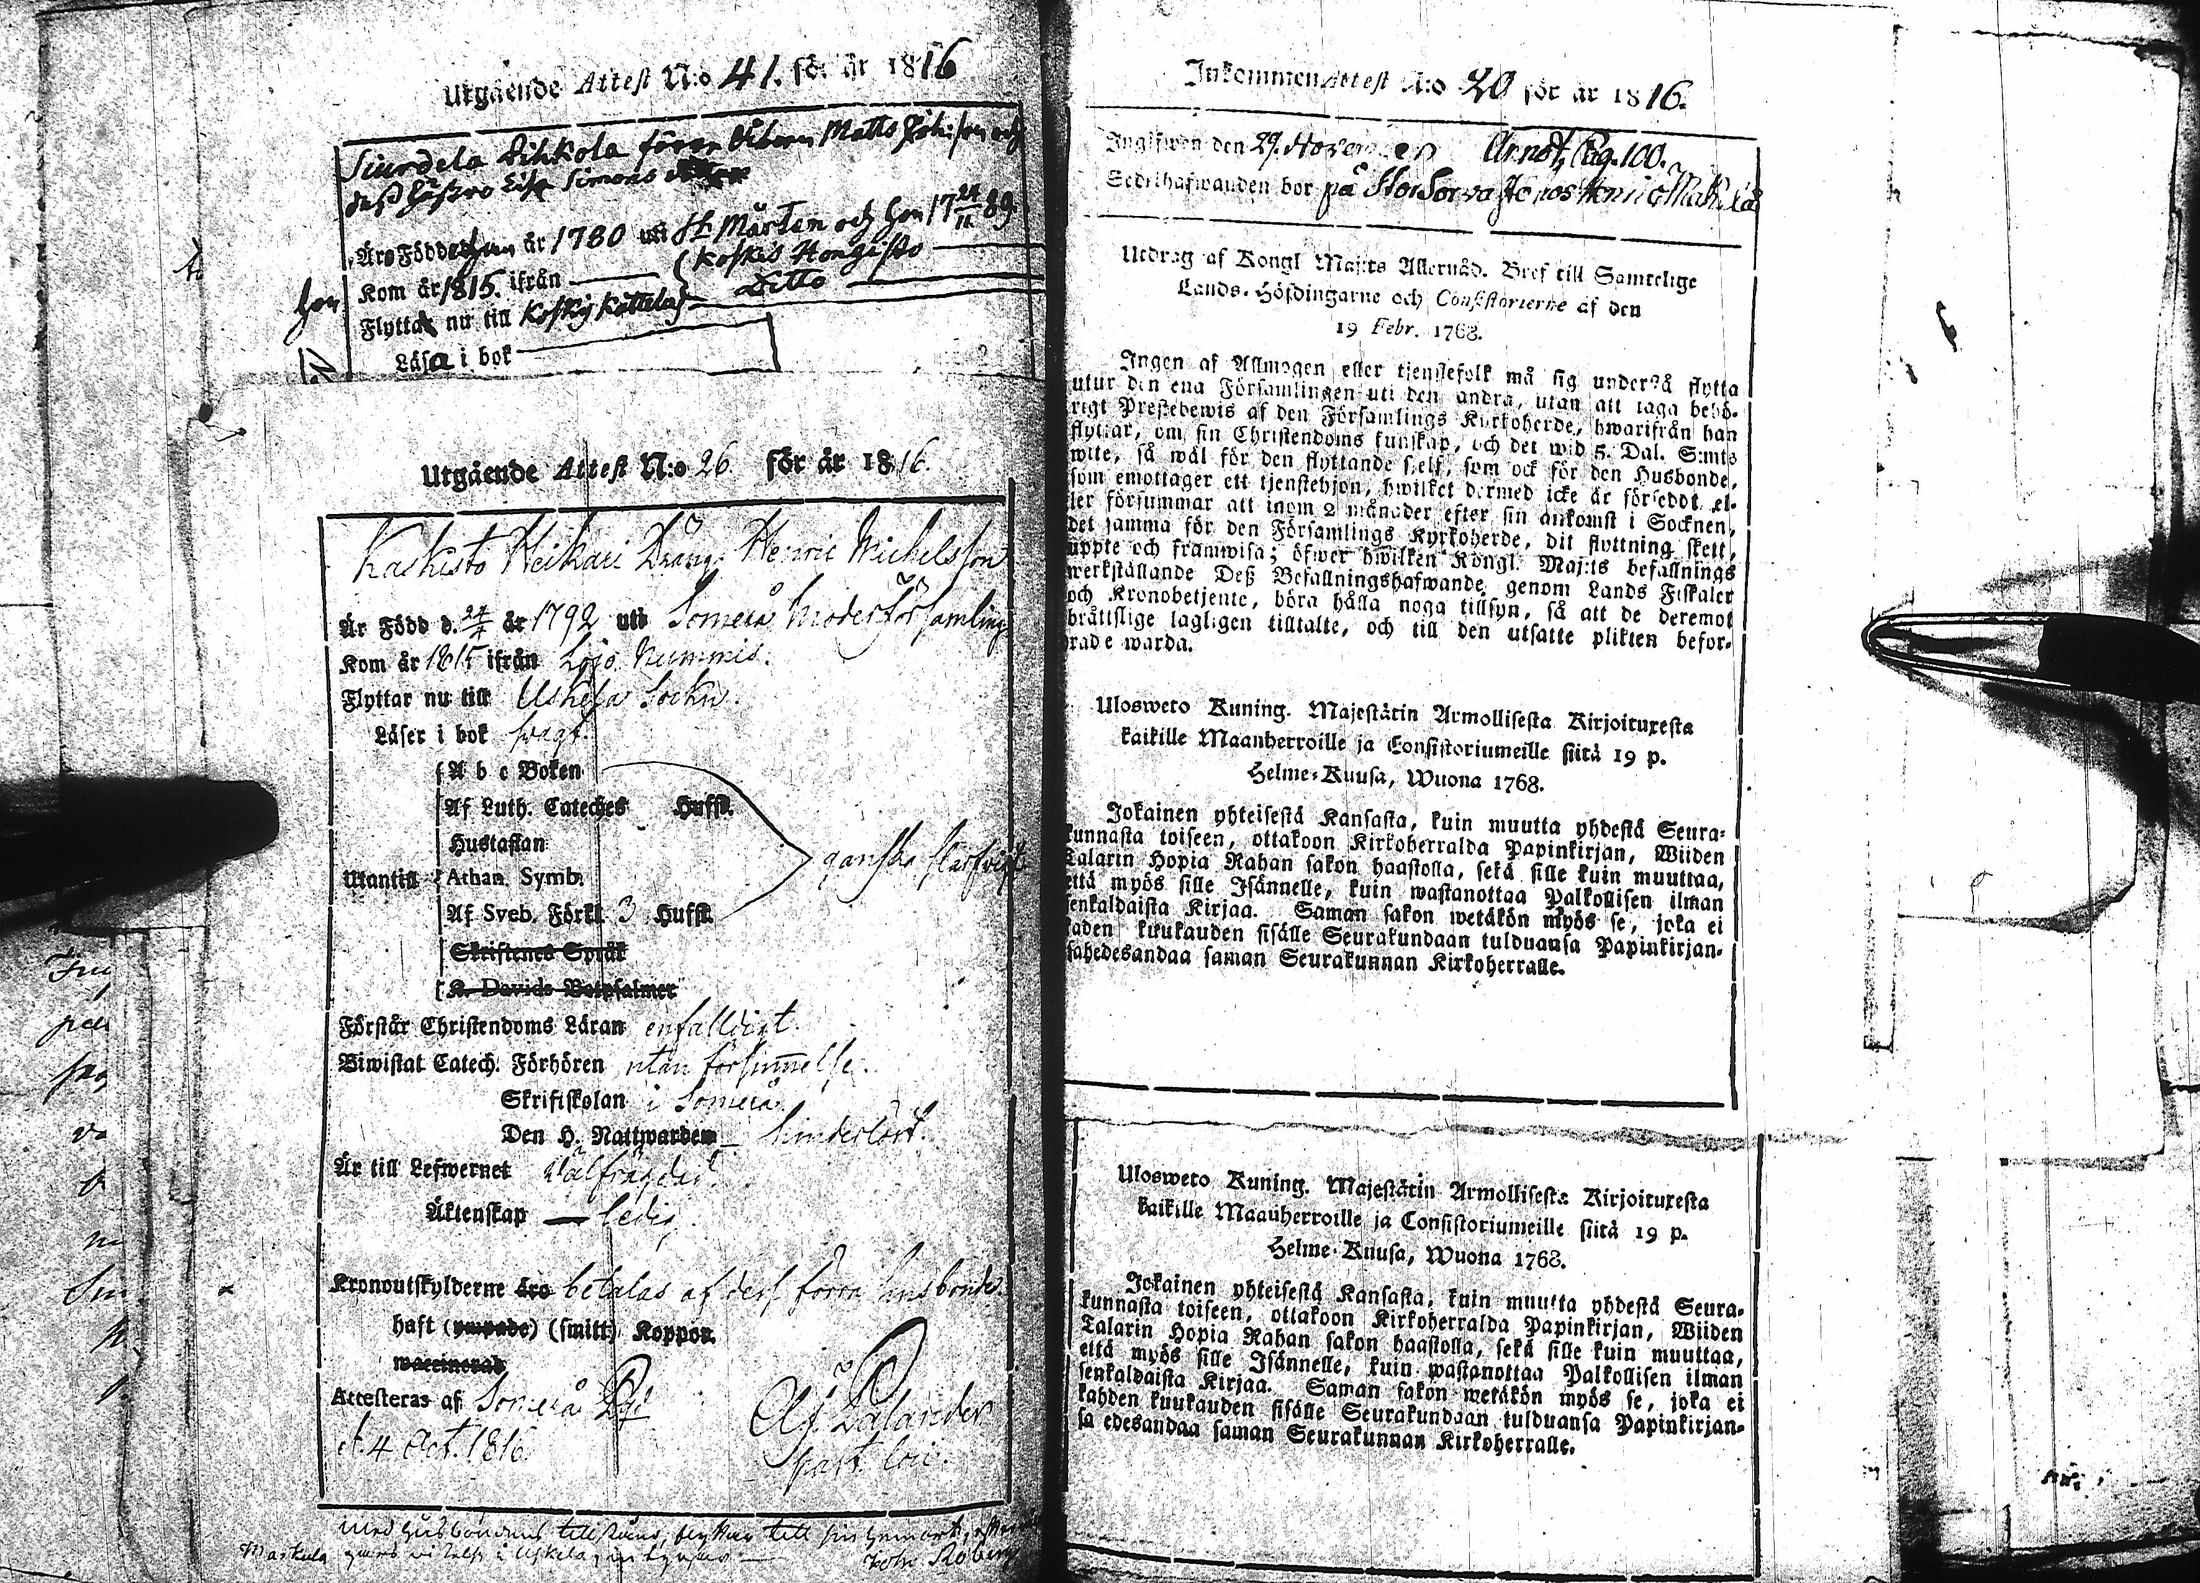 Utgående Attest N:o 41. för år 1816
Siurdela förra Matts och
deß hustru Lisa Simons
Äro Födde år 1780 uti St Mårten och hon 17 24/11 89
Kom år 1815. ifrån Koskis Hongisto
hon
Flytta nu till Koskis Kattila Ditto
Läsa i bok
Utgående Attest N:o 26. för år 1816.
Heikari Dräng Henric Michelsson
Är Född d. år 1792 uti Somero Moderförsamling
Kom år 1815 ifrån Lojo Nummis.
Flyttar nu till Uskela Sockn.
Läser i bok swagt.
A b c Boken
Af Luth. Cateches Hufst.
Hustaflan
Utantill Athan. Symb. ganska
Af Sveb. Förkl. 3 Hufst.
Skriftenes Språk
K. Davids Botpsalmer
Förstår Christendoms Läran enfaldigt.
Biwistat Catech. Förhören utan försummelse.
Skriftskolan i Somero
Den H. Nattwarden
Är till Lefwernet wälfrägdad.
Äktenskap — ledig.
Kronoutskylderne äro betalas af dess förra husbonde.
haft (ympade) (smitt) Koppor.
waccinerad
Attesteras af Somero
d. 4 Oct. 1816. Palander
past. loci.
Med husbondens till
Uskela
Inkommen Attest N:o 20 för år 1816.
Ingifwen den 29. November Annot. Pag. 100.
Sedelhafwanden bor på
Utdrag af Kongl Maj:ts Allernåd. Bref till Samtelige
Lands-Höfdingarne och Consistorierne af den
19 Febr. 1768.
Ingen af Allmogen eller tjenstefolk må sig understå flytta
utur den ena Församlingen uti den andra, utan att taga behö-
rigt Prestebewis af den Församlings Kyrkoherde, hwarifrån han
flyttar, om sin Christendoms kunskap, och det wid 5. Dal. S:mts
wite, så wäl för den flyttande sjelf, som ock för den Husbonde,
som emottager ett tjenstehjon, hwilket dermed icke är försedt, el-
ler försummar att inom 2 månader efter sin ankomst i Socknen,
det samma för den Församlings Kyrkoherde, dit flyttning skett,
uppte och framwisa; öfwer hwilken Kongl. Maj:ts befallnings
werkställande Deß Befallningshafwande genom Lands Fiskaler
och Kronobetjente, böra hålla noga tillsyn, så att de deremot
bråttslige lagligen tilltalte, och till den utsatte plikten befor-
rade warda.
Ulosweto Kuning. Majestätin Armollisesta Kirjoituxesta
kaikille Maanherroille ja Consistoriumeille siitä 19 p.
Helme-Kuusa, Wuona 1768.
Jokainen yhteisestä Kansasta, kuin muutta yhdestä Seura-
kunnasta toiseen, ottakoon Kirkoherralda Papinkirjan, Wiiden
Talarin Hopia Rahan sakon haastolla, sekä sille kuin muuttaa,
että myös sille Isännelle, kuin wastanottaa Palkollisen ilman
senkaldaista Kirjaa. Saman sakon wetäkön myös se, joka ei
kahden kuukauden sisälle Seurakundaan tulduansa Papinkirjan-
sa edesandaa saman Seurakunnan Kirkoherralle.
Ulosweto Kuning. Majestätin Armollisesta Kirjoituxesta
kaikille Maanherroille ja Consistoriumeille siitä 19 p.
Helme-Kuusa, Wuona 1768.
Jokainen yhteisestä Kansasta, kuin muutta yhdestä Seura-
kunnasta toiseen, ottakoon Kirkoherralda Papinkirjan, Wiiden
Talarin Hopia Rahan sakon haastolla, sekä sille kuin muuttaa,
että myös sille Isännelle, kuin wastanottaa Palkollisen ilman
senkaldaista Kirjaa. Saman sakon wetäkön myös se, joka ei
kahden kuukauden sisälle Seurakundaan tulduansa Papinkirjan-
sa edesandaa saman Seurakunnan Kirkoherralle.